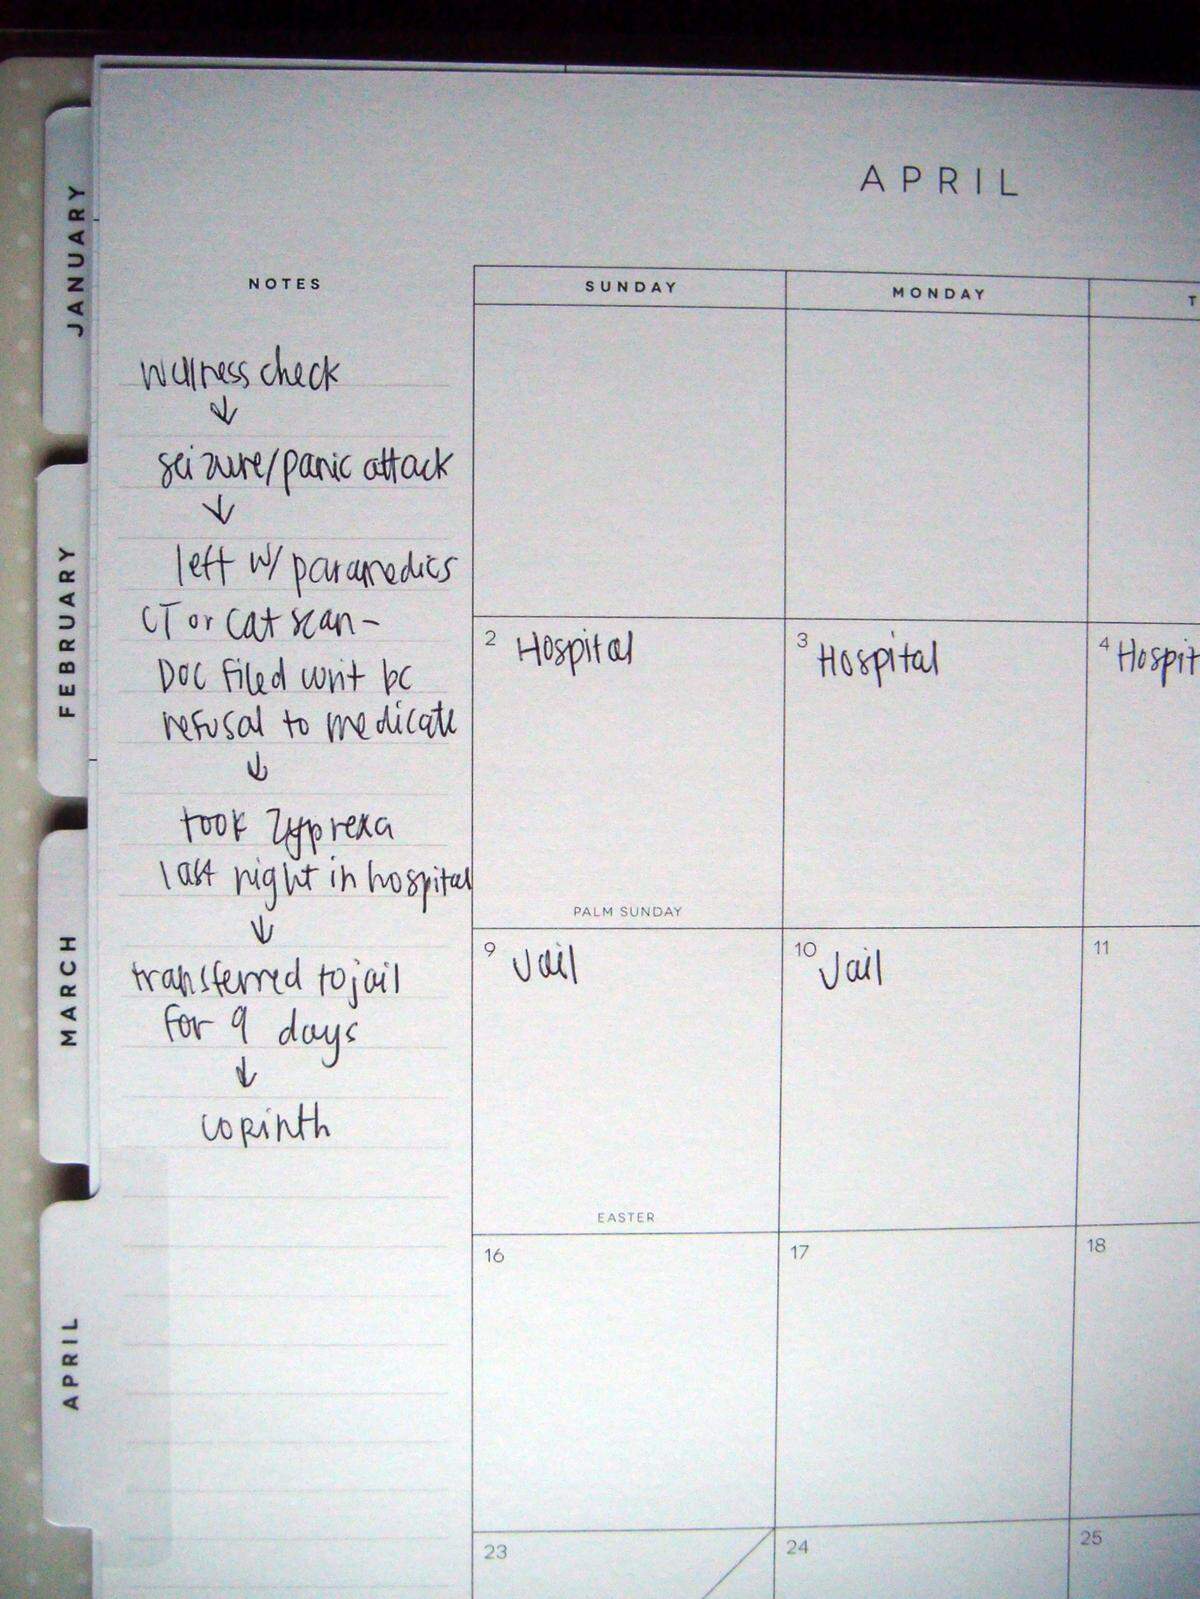 APRIL
NOTES
SUNDAY
MONDAY
T
wellness check
↓
seizure/panic attack
↓
left w/ paramedics
CT or cat scan-
Doc filed writ bc
refusal to medicate
↓
took zyprexa
last night in hospital
↓
transferred to jail
for 9 days
↓
corinth
2 Hospital
3 Hospital
4 Hospit
PALM SUNDAY
9 Jail
10 Jail
11
EASTER
16
17
18
23
24
25
JANUARY
FEBRUARY
MARCH
APRIL